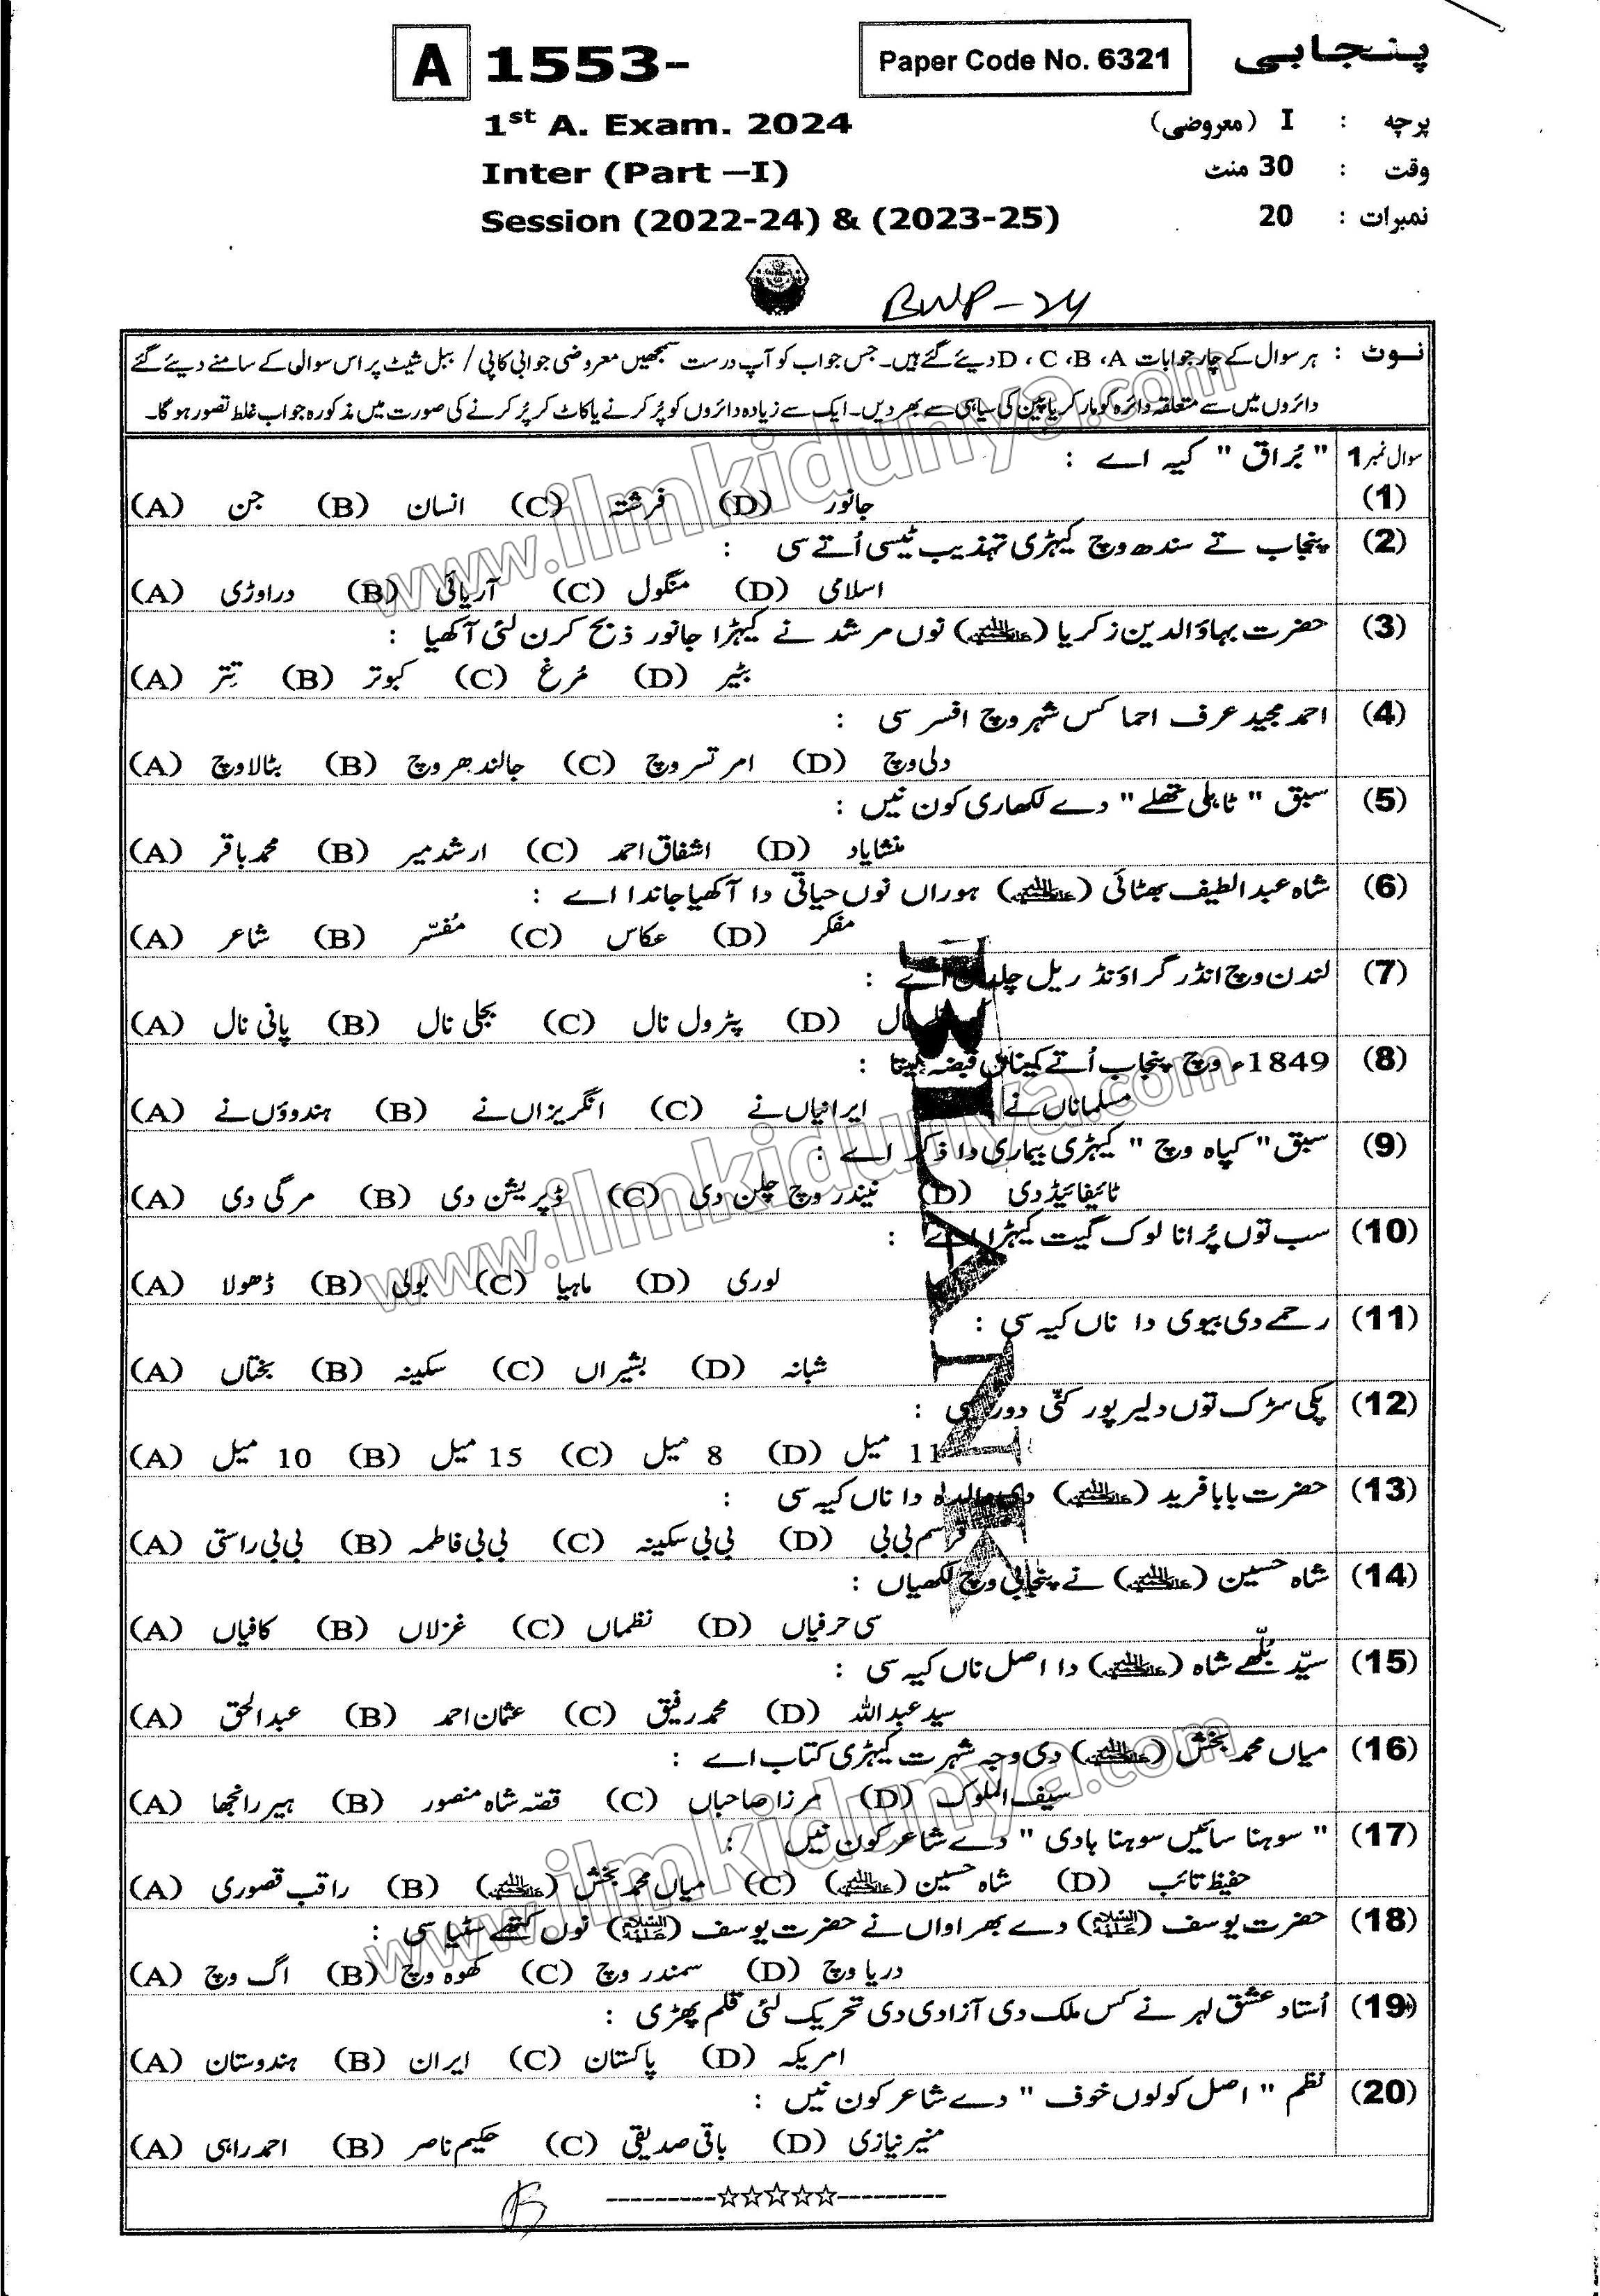 A 1553-
Paper Code No. 6321
پنجابی
1st A. Exam. 2024
پرچہ : I (معروضی)
Inter (Part –I)
وقت : 30 منٹ
Session (2022-24) & (2023-25)
نمبرات : 20
BWP-24
نوٹ : ہر سوال کے چار جوابات D ، C ،B ،A دیئے گئے ہیں۔ جس جواب کو آپ درست سمجھیں معروضی جوابی کاپی / ببل شیٹ پر اس سوالی کے سامنے دیئے گئے
دائروں میں سے متعلقہ دائرہ کو مارکر یا پین کی سیاہی سے بھر دیں۔ ایک سے زیادہ دائروں کو پُر کرنے یا کاٹ کر پُر کرنے کی صورت میں مذکورہ جواب غلط تصور ہوگا۔
سوال نمبر 1 " بُراق " کیہ اے :
(1) (A) جن (B) انسان (C) فرشتہ (D) جانور
(2) پنجاب تے سندھ وچ کیہڑی تہذیب ٹیسی اُتے سی :
(A) دراوڑی (B) آریائی (C) منگول (D) اسلامی
(3) حضرت بہاؤالدین زکریا (رحمۃ اللہ علیہ) نوں مرشد نے کیہڑا جانور ذبح کرن لئی آکھیا :
(A) تِتر (B) کبوتر (C) مُرغ (D) بٹیر
(4) احمد مجید عرف احما کس شہر وچ افسر سی :
(A) بٹالا وچ (B) جالندھر وچ (C) امرتسر وچ (D) دلی وچ
(5) سبق " ٹاہلی تھلے " دے لکھاری کون نیں :
(A) محمد باقر (B) ارشد میر (C) اشفاق احمد (D) منشایاد
(6) شاہ عبد الطیف بھٹائی (رحمۃ اللہ علیہ) ہوراں نوں حیاتی دا آکھیا جاندا اے :
(A) شاعر (B) مُفسّر (C) عکاس (D) مفکر
(7) لندن وچ انڈر گراؤنڈ ریل چلدی اے :
(A) پانی نال (B) بجلی نال (C) پٹرول نال (D) نال
(8) 1849ء وچ پنجاب اُتے کیہناں قبضہ کیتا :
(A) ہندوؤں نے (B) انگریزاں نے (C) ایرانیاں نے مسلماناں نے
(9) سبق " کپاہ وچ " کیہڑی بیماری دا ذکر اے :
(A) مرگی دی (B) ڈپریشن دی (C) نیندر وچ چلن دی (D) ٹائیفائیڈ دی
(10) سب توں پُرانا لوک گیت کیہڑا اے :
(A) ڈھولا (B) بولی (C) ماہیا (D) لوری
(11) رحمے دی بیوی دا ناں کیہ سی :
(A) بختاں (B) سکینہ (C) بشیراں (D) شبانہ
(12) پکی سڑک توں دلیر پور کنّی دور سی :
(A) 10 میل (B) 15 میل (C) 8 میل (D) 11 میل
(13) حضرت بابا فرید (رحمۃ اللہ علیہ) دی والدہ دا ناں کیہ سی :
(A) بی بی راستی (B) بی بی فاطمہ (C) بی بی سکینہ (D) قرسم بی بی
(14) شاہ حسین (رحمۃ اللہ علیہ) نے پنجابی وچ لکھیاں :
(A) کافیاں (B) غزلاں (C) نظماں (D) سی حرفیاں
(15) سیّد بُلّھے شاہ (رحمۃ اللہ علیہ) دا اصل ناں کیہ سی :
(A) عبدالحق (B) عثمان احمد (C) محمد رفیق (D) سید عبد اللہ
(16) میاں محمد بخش (رحمۃ اللہ علیہ) دی وجہ شہرت کیہڑی کتاب اے :
(A) ہیر رانجھا (B) قصّہ شاہ منصور (C) مرزا صاحباں (D) سیف الملوک
(17) " سوہنا سائیں سوہنا ہادی " دے شاعر کون نیں :
(A) راقب قصوری (B) میاں محمد بخش (رحمۃ اللہ علیہ) (C) شاہ حسین (رحمۃ اللہ علیہ) (D) حفیظ تائب
(18) حضرت یوسف (علیہ السلام) دے بھراواں نے حضرت یوسف (علیہ السلام) نوں کتھے سٹیا سی :
(A) اگ وچ (B) کھوہ وچ (C) سمندر وچ (D) دریا وچ
(19) اُستاد عشق لہر نے کس ملک دی آزادی دی تحریک لئی قلم پھڑی :
(A) ہندوستان (B) ایران (C) پاکستان (D) امریکہ
(20) نظم " اصل کولوں خوف " دے شاعر کون نیں :
(A) احمد راہی (B) حکیم ناصر (C) باقی صدیقی (D) منیر نیازی
---------☆☆☆☆☆---------
www.ilmkidunya.com
www.ilmkidunya.com
www.ilmkidunya.com